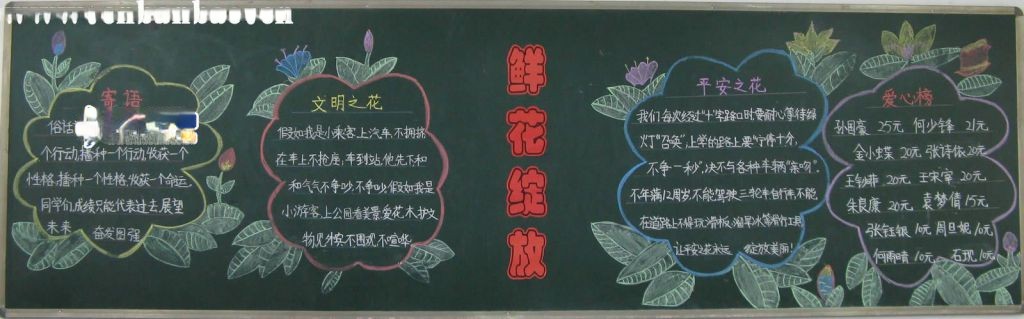 寄语
俗话
个行动,播种一个行动,收获一个
性格,播种一个性格,收获一个命运
同学们,成绩只能代表过去,展望
未来 奋发图强
文明之花
假如我是小乘客,上汽车,不拥挤
在车上不抢座,车到站,他先下和
和气气不争吵,不争吵,假如我是
小游客,上公园看美景,爱花木,护文
物,见稀客不围观不喧哗
鲜花绽放
平安之花
我们每次经过"十"字路口时要耐心等待绿
灯"召唤",上学的路上要宁等十分,
不争一秒",决不与各种车辆"亲吻"。
不年满12周岁,不能驾驶三轮车,自行车,不能
在道路上不得玩滑板,溜旱冰等滑行工具
让平安之花永远 绽放美丽!
爱心榜
孙国豪 25元 何少锋 21元
金小蝶 20元 张诗依20元
王钞菲 20元 王宋宰 20元
朱良康 20元 袁梦倩 15元
张钰银 10元 周旦妮 10元
何雨晴 10元 石现 10元